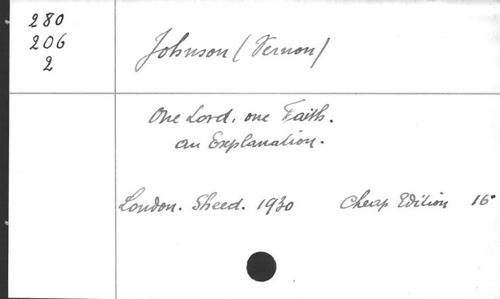 280
206
2
Johnson (Vernon)
One Lord, one Faith.
an Explanation.
London. Sheed. 1930 Cheap Edition 16°